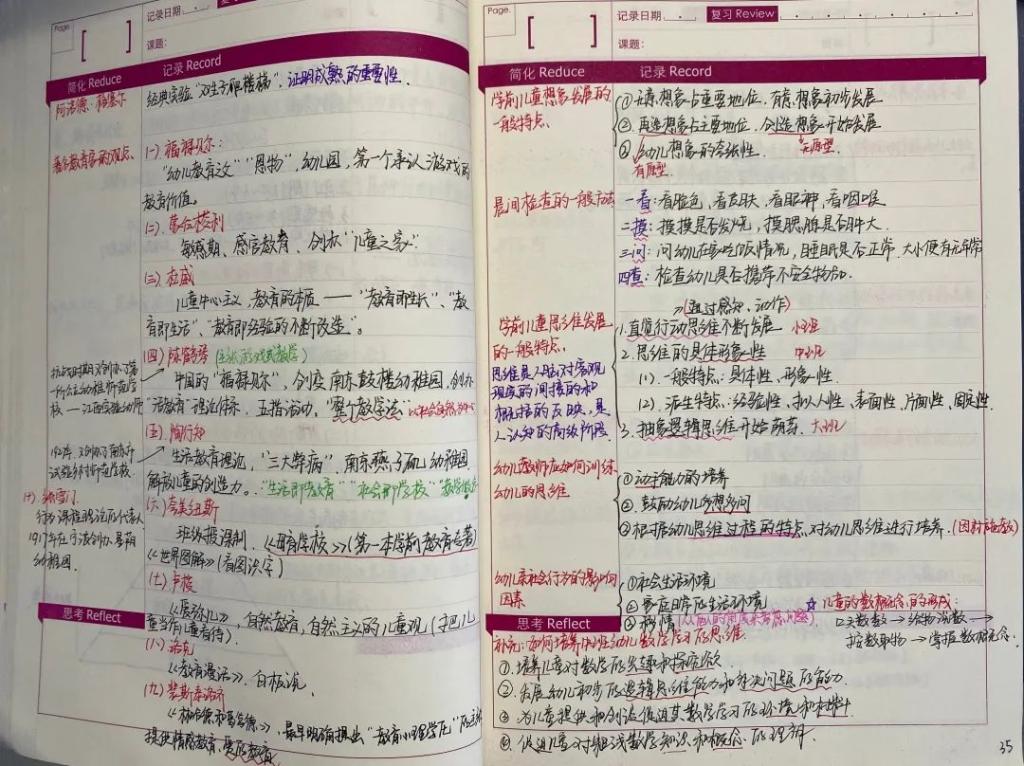 Page.
记录日期
课题：
简化 Reduce
记录 Record
阿诺德·格塞尔
经典实验“双生子爬楼梯”，证明成熟的重要性．
著名教育家的观点．
(一)．福禄贝尔：
“幼儿教育之父”“恩物”，幼儿园，第一个承认游戏的
教育价值。
(二)．蒙台梭利
敏感期、感官教育、创办“儿童之家”。
(三)．杜威
儿童中心主义，教育的本质——“教育即生长”、“教
育即生活”、“教育即经验的不断改造”。
(四)陈鹤琴
中国的“福禄贝尔”，创皮南京鼓楼幼稚园，创办
“活教育”理论体系．五指活动，“整个教学法”
(五)．陶行知
生活教育理论，“三大弊病”，南京燕子矶幼稚园
解放儿童的创造力。“生活即教育”“社会即学校”
(六)夸美纽斯
班级授课制．《母育学校》(第一本学前教育专著)
《世界图解》(看图识字)
(七)卢梭
《爱弥儿》，自然教育，自然主义的儿童观，(寻巴儿
童当作儿童看待)．
(八)洛克
《教育漫话》．白板说．
(九)裴斯泰洛齐
，最早明确提出“教育心理学化”的主张
提供情感教育、爱的教育
抗战时期又创办了第
一所公立幼稚师范学
校——江西实验幼师
(十)张雪门
行为课程理论的代表人
幼稚园．
思考 Reflect
Page.
记录日期
复习 Review
课题：
简化 Reduce
记录 Record
学前儿童想象发展的
一般特点．
①无意想象占重要地位．有意想象初步发展
②再造想象占主要地位．创造想象开始发展
无原型
③幼儿想象的夸张性．
有原型
晨间检查的一般方法
一看：看脸色，看皮肤，看眼神，看咽喉
二摸：摸摸是否发烧，摸腮腺是否肿大．
三问：问幼儿在家吃饭情况，睡眠是否正常．大小便有无异常
四查：检查幼儿是否携带不安全物品．
(通过感知．动作)
学前儿童思维发展
的一般特点．
1.直觉行动思维不断发展 小班
思维是人脑对客观
现实的间接的和
概括的反映，是
人认知的高级阶段．
2．思维的具体形象性 中班
(1)．一般特点：具体性、形象性．
(2)．派生特点：经验性、拟人性、表面性、片面性、固定性．
3．抽象逻辑思维开始萌芽．大班
幼儿教师应如何训练
幼儿的思维
①动手能力的培养
②鼓励幼儿多想多问
③根据幼儿思维过程的特点对幼儿思维进行培养．(因材施教)
幼儿亲社会行为的影响
因素
①社会生活环境
②家庭日常的生活环境
③移情
☆儿童的数概念的形成：
口头数数→给物说数→
按数取物→掌握数概念．
思考 Reflect
补充：如何培养幼儿数学学习的思维．
①．培养儿童对数学的兴趣和探究欲
②．发展幼儿初步的逻辑思维能力和解决问题的能力．
③．为儿童提供和创设促进其数学学习的环境和材料．
④．促进儿童对粗浅数学知识和概念的理解．
35